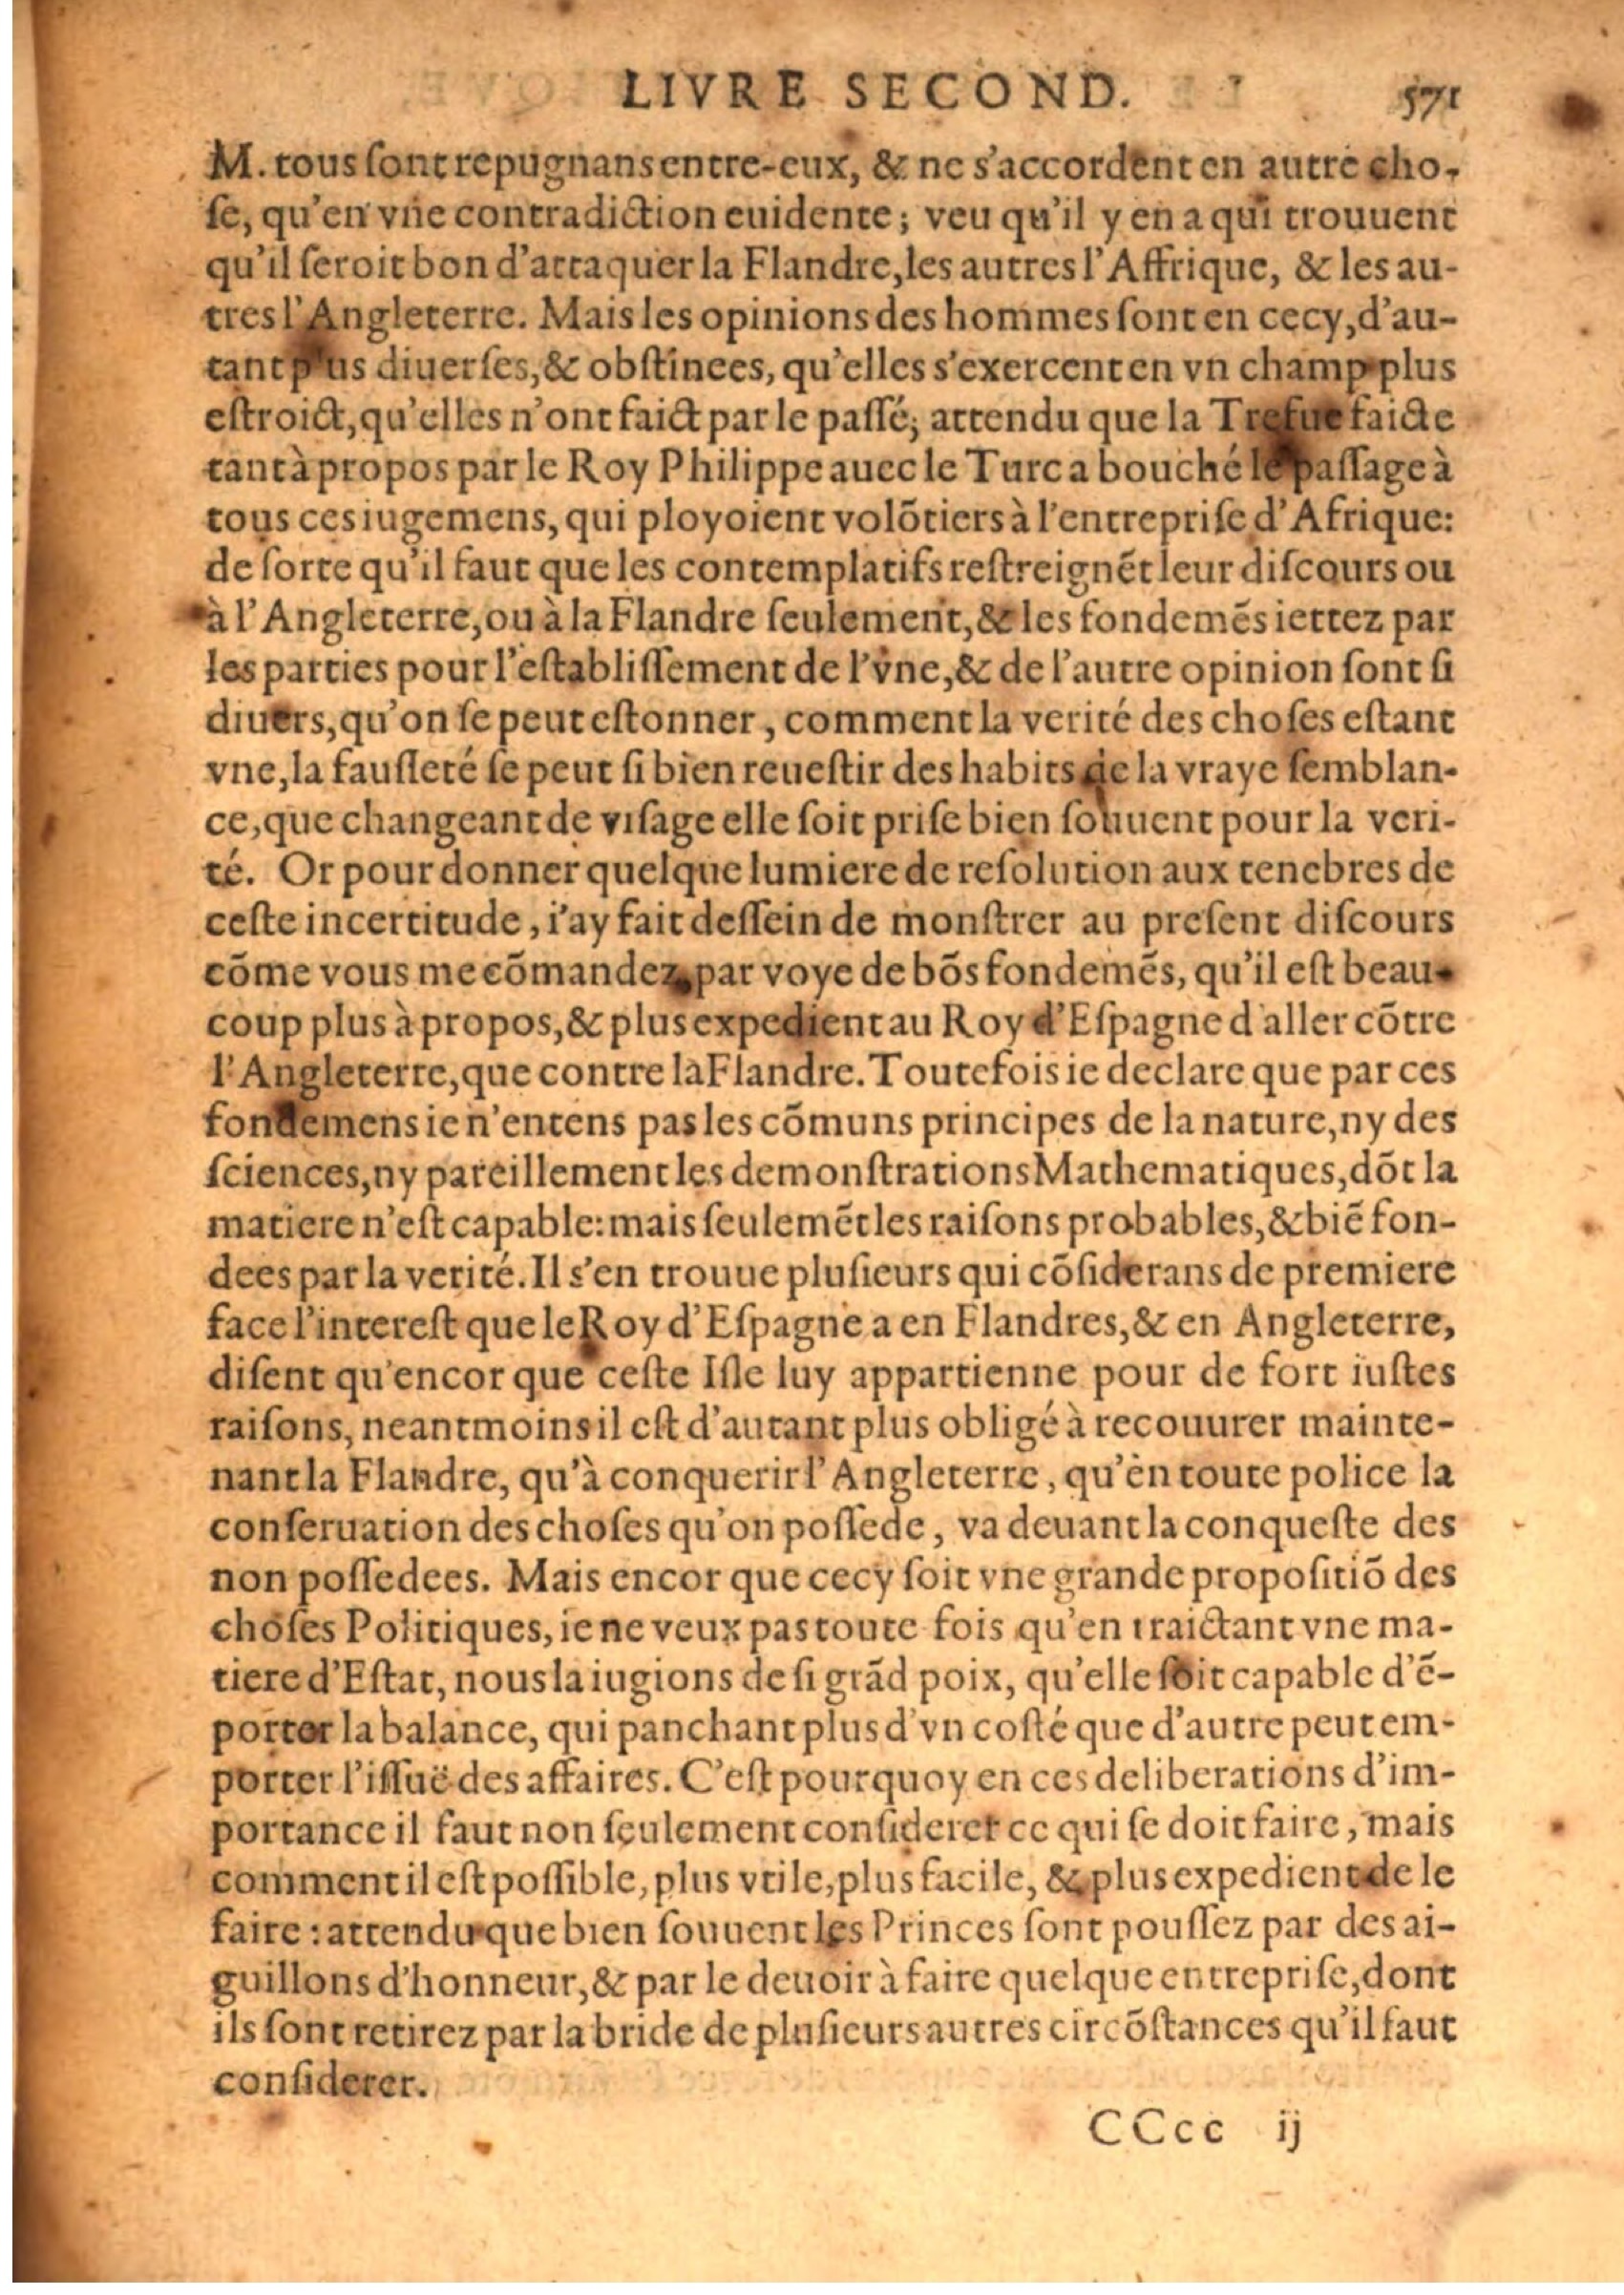 LIVRE SECOND. 571
M. tous ſont repugnans entre-eux, & ne s'accordent en autre cho-
ſe, qu'en vne contradiction euidente; veu qu'il y en a qui trouuent
qu'il ſeroit bon d'attaquer la Flandre, les autres l'Affrique, & les au-
tres l'Angleterre. Mais les opinions des hommes ſont en cecy, d'au-
tant plus diuerſes, & obſtinees, qu'elles s'exercent en vn champ plus
eſtroict, qu'elles n'ont faict par le paſſé; attendu que la Trefue faicte
tant à propos par le Roy Philippe auec le Turc a bouché le paſſage à
tous ces iugemens, qui ployoient volõtiers à l'entrepriſe d'Afrique:
de ſorte qu'il faut que les contemplatifs reſtreignẽt leur diſcours ou
à l'Angleterre, ou à la Flandre ſeulement, & les fondemẽs iettez par
les parties pour l'eſtabliſſement de l'vne, & de l'autre opinion ſont ſi
diuers, qu'on ſe peut eſtonner, comment la verité des choſes eſtant
vne, la fauſſeté ſe peut ſi bien reueſtir des habits de la vraye ſemblan-
ce, que changeant de viſage elle ſoit priſe bien ſouuent pour la veri-
té. Or pour donner quelque lumiere de reſolution aux tenebres de
ceſte incertitude, i'ay fait deſſein de monſtrer au preſent diſcours
cõme vous me cõmandez, par voye de bõs fondemẽs, qu'il eſt beau-
coup plus à propos, & plus expedient au Roy d'Eſpagne d'aller cõtre
l'Angleterre, que contre la Flandre. Toutefois ie declare que par ces
fondemens ie n'entens pas les cõmuns principes de la nature, ny des
ſciences, ny pareillement les demonſtrations Mathematiques, dõt la
matiere n'eſt capable: mais ſeulemẽt les raiſons probables, & biẽ fon-
dees par la verité. Il s'en trouue pluſieurs qui cõſiderans de premiere
face l'intereſt que le Roy d'Eſpagne a en Flandres, & en Angleterre,
diſent qu'encor que ceſte Iſle luy appartienne pour de fort iuſtes
raiſons, neantmoins il eſt d'autant plus obligé à recouurer mainte-
nant la Flandre, qu'à conquerir l'Angleterre, qu'en toute police la
conſeruation des choſes qu'on poſſede, va deuant la conqueſte des
non poſſedees. Mais encor que cecy ſoit vne grande propoſitiõ des
choſes Politiques, ie ne veux pas toute fois qu'en traictant vne ma-
tiere d'Eſtat, nous la iugions de ſi grãd poix, qu'elle ſoit capable d'ẽ-
porter la balance, qui panchant plus d'vn coſté que d'autre peut em-
porter l'iſſuë des affaires. C'eſt pourquoy en ces deliberations d'im-
portance il faut non ſeulement conſiderer ce qui ſe doit faire, mais
comment il eſt poſſible, plus vtile, plus facile, & plus expedient de le
faire: attendu que bien ſouuent les Princes ſont pouſſez par des ai-
guillons d'honneur, & par le deuoir à faire quelque entrepriſe, dont
ils ſont retirez par la bride de pluſieurs autres circõſtances qu'il faut
conſiderer.
CCcc ij